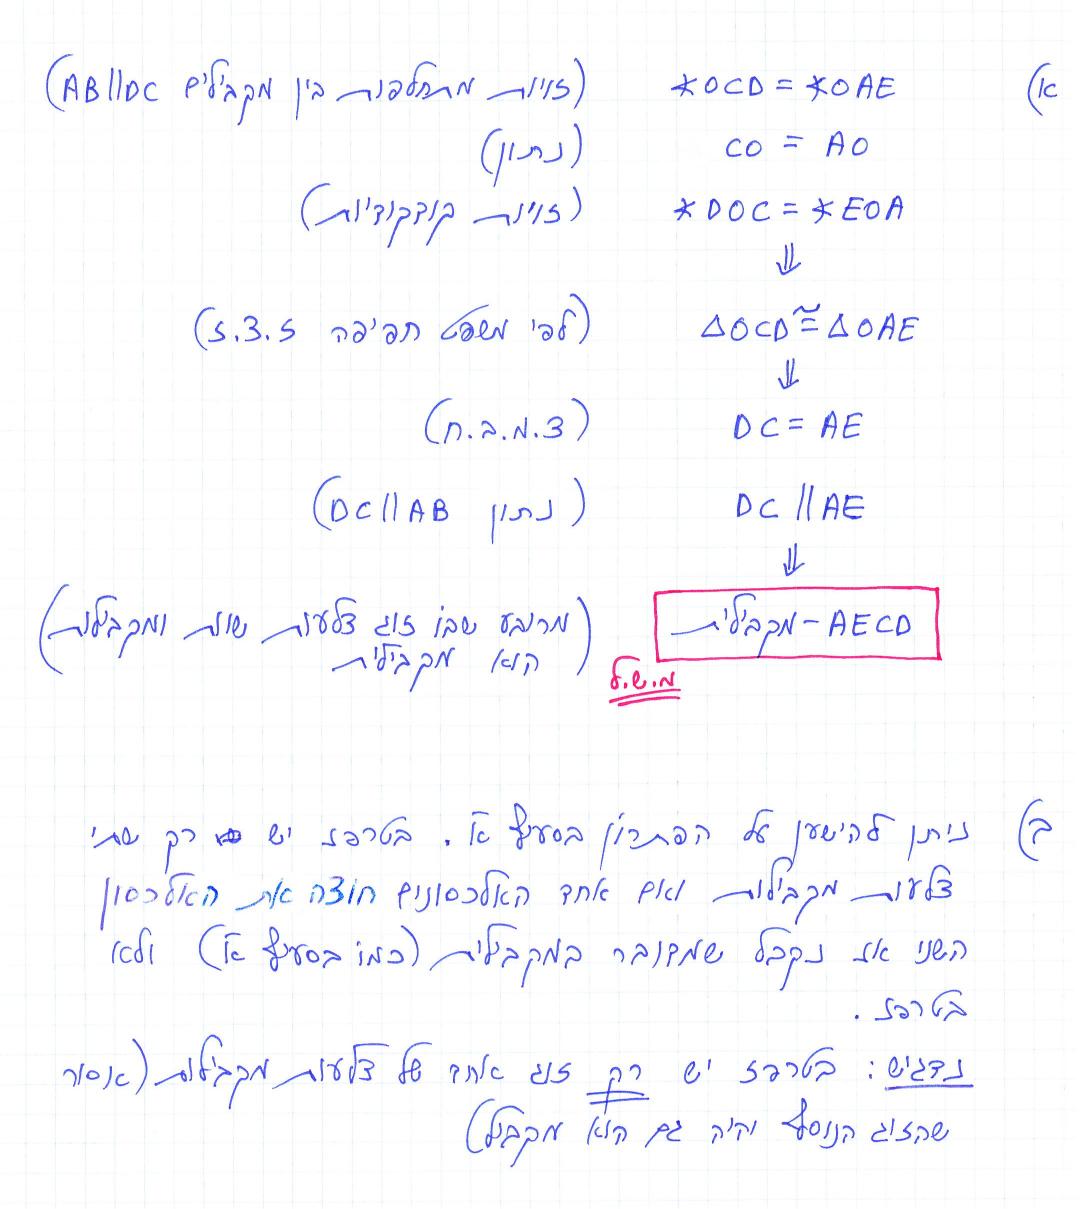 א) ∢OCD = ∢OAE (זוויות מתחלפות בין מקבילים AB||DC)
CO = AO (נתון)
∢DOC = ∢EOA (זוויות קודקודיות)
⇓
△OCD ≅ △OAE (לפי משפט חפיפה ז.צ.ז)
⇓
DC = AE (צ.מ.ב.ח)
DC || AE (נתון DC||AB)
⇓
AECD - מקבילית (מרובע שבו זוג צלעות שוות ומקבילות
הוא מקבילית)
מ.ש.ל
ב) ניתן להישען על הפתרון בסעיף א'. בטרפז יש רק שתי
צלעות מקבילות ואם אחד האלכסונים חוצה את האלכסון
השני אז נקבל שמדובר במקבילית (כמו בסעיף א') ולא
בטרפז.
נדגיש: בטרפז יש רק זוג אחד של צלעות מקבילות (אסור
שהזוג הנוסף יהיה גם הוא מקביל)